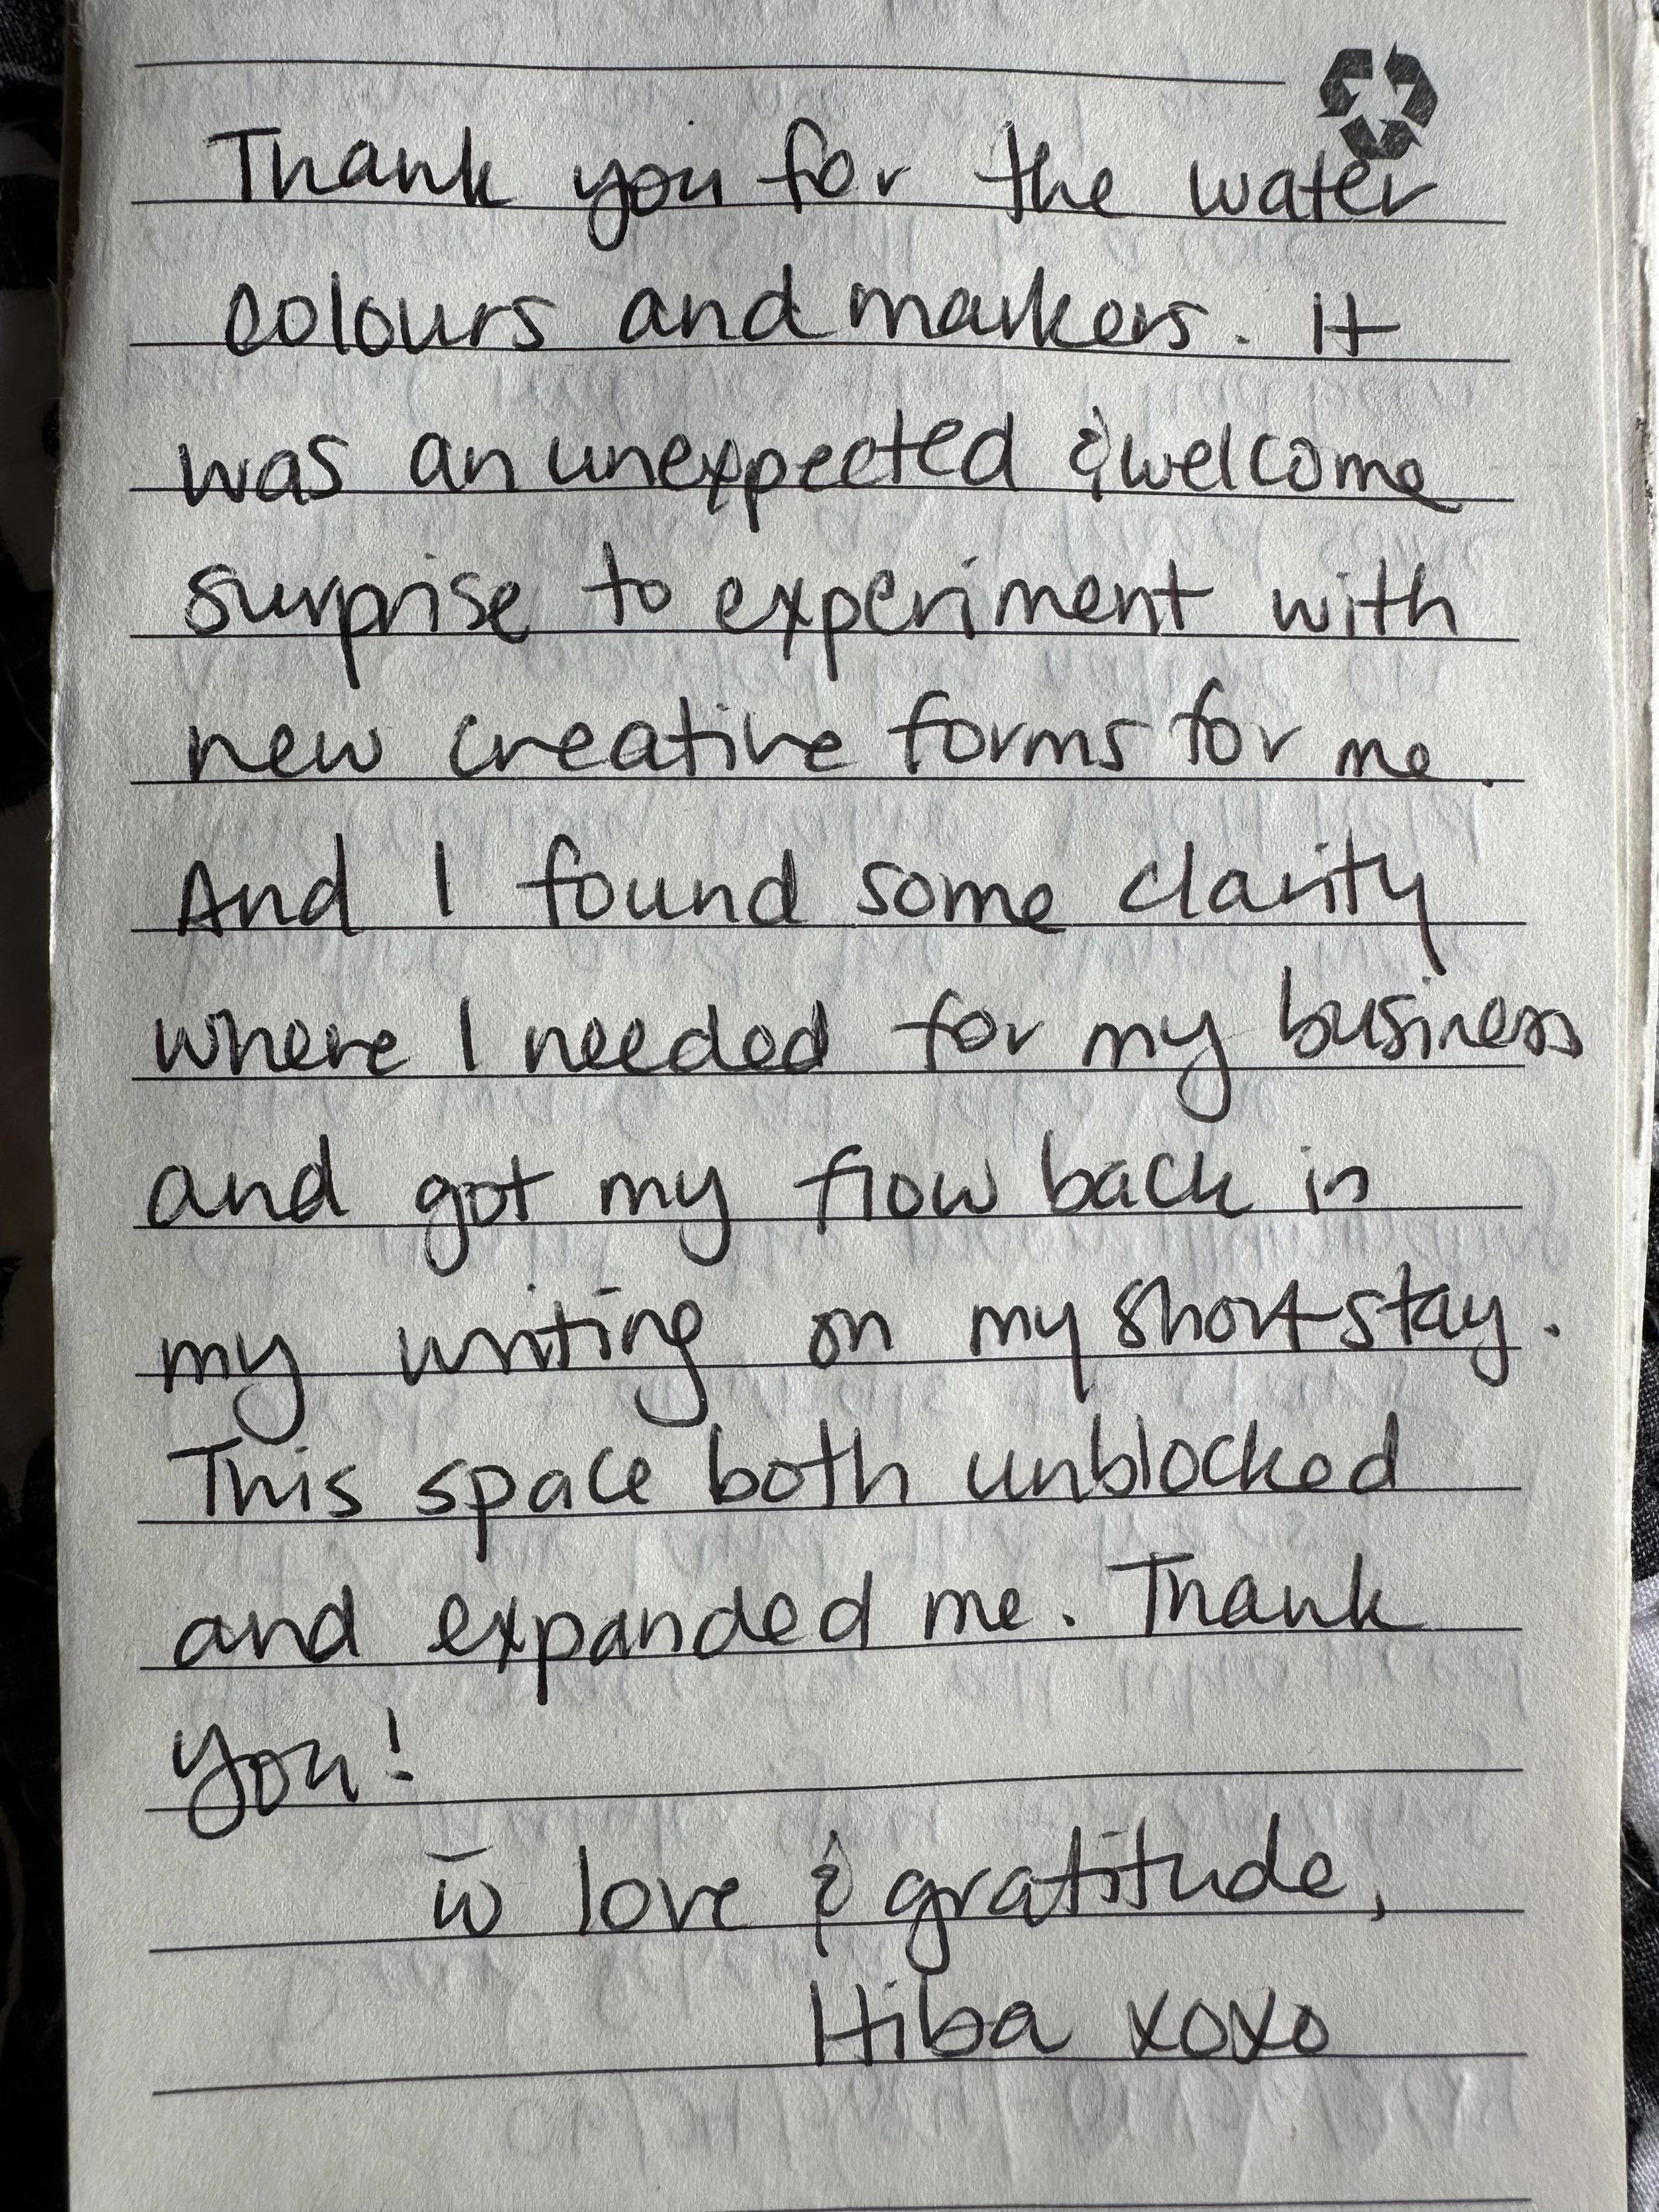 Thank you for the water
colours and markers. It
was an unexpected & welcome
surprise to experiment with
new creative forms for me.
And I found some clarity
where I needed for my business
and got my flow back in
my writing on my short stay.
This space both unblocked
and expanded me. Thank
you!
w̄ love & gratitude,
Hiba xoxo